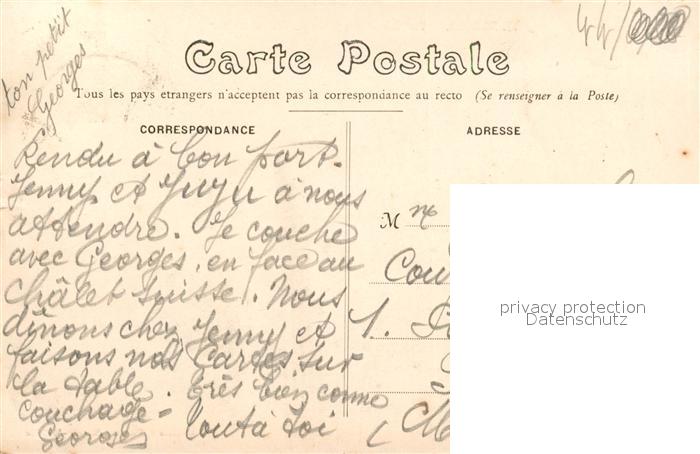 ton petit
Georges
44/
Carte Postale
Tous les pays étrangers n'acceptent pas la correspondance au recto (Se renseigner à la Poste)
CORRESPONDANCE
ADRESSE
Rendu à bon port.
Jenny et Yuyu à nous
attendre. Je couche
avec Georges, en face au
châlet suisse. Nous
dînons chez Jenny et
faisons nos cartes sur
la table. très bien comme
couchage -
Georges tout à toi
M me
Cou
1.
privacy protection
Datenschutz